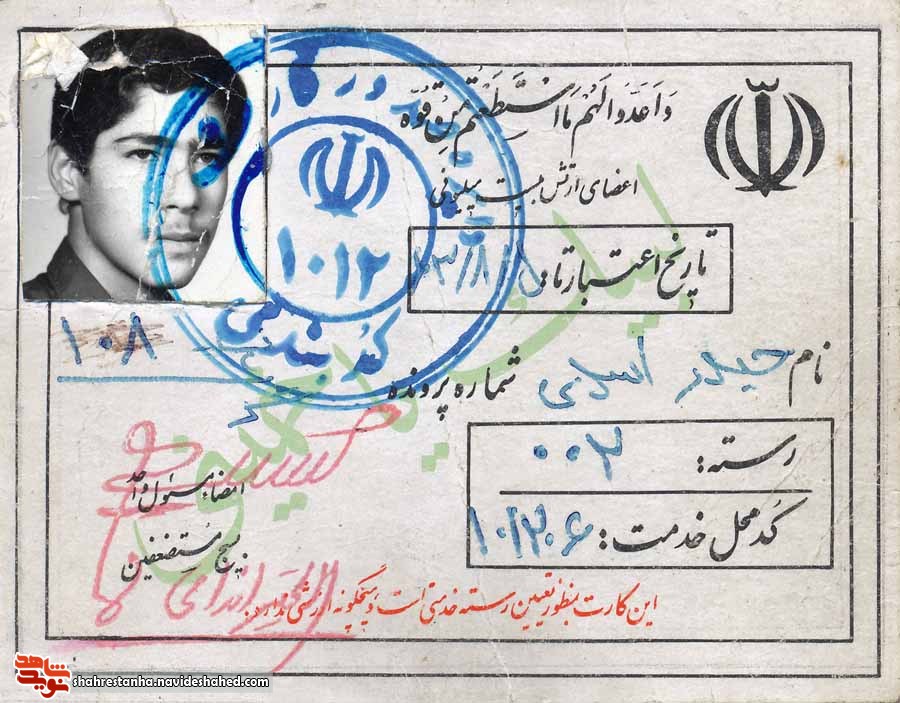 وَاَعِدّوا لَهُم مَا اسْتَطَعْتُم مِن قُوَّه
اعضای ارتش بیست میلیونی
تاریخ اعتبار تا
نام حیدر اسدی
شماره پرونده
۱۰۸
رسته: ۰۰۲
کد محل خدمت: ۱۰/۲۰۶
امضاء مسئول واحد
بسیج مستضعفین
این کارت بمنظور تعیین رسته خدمتی است و هیچگونه ارزشی ندارد.
۱۰۱۲
لبیک یا خمینی
شاهد
نوید
shahrestanha.navideshahed.com